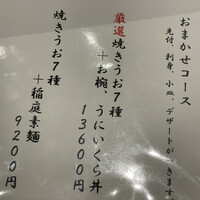 おまかせコース
先付、刺身、小皿、デザートが、つきます
厳選焼きうお7種
+お椀、うにいくら丼
13600円
焼きうお7種
+稲庭素麺
9200円